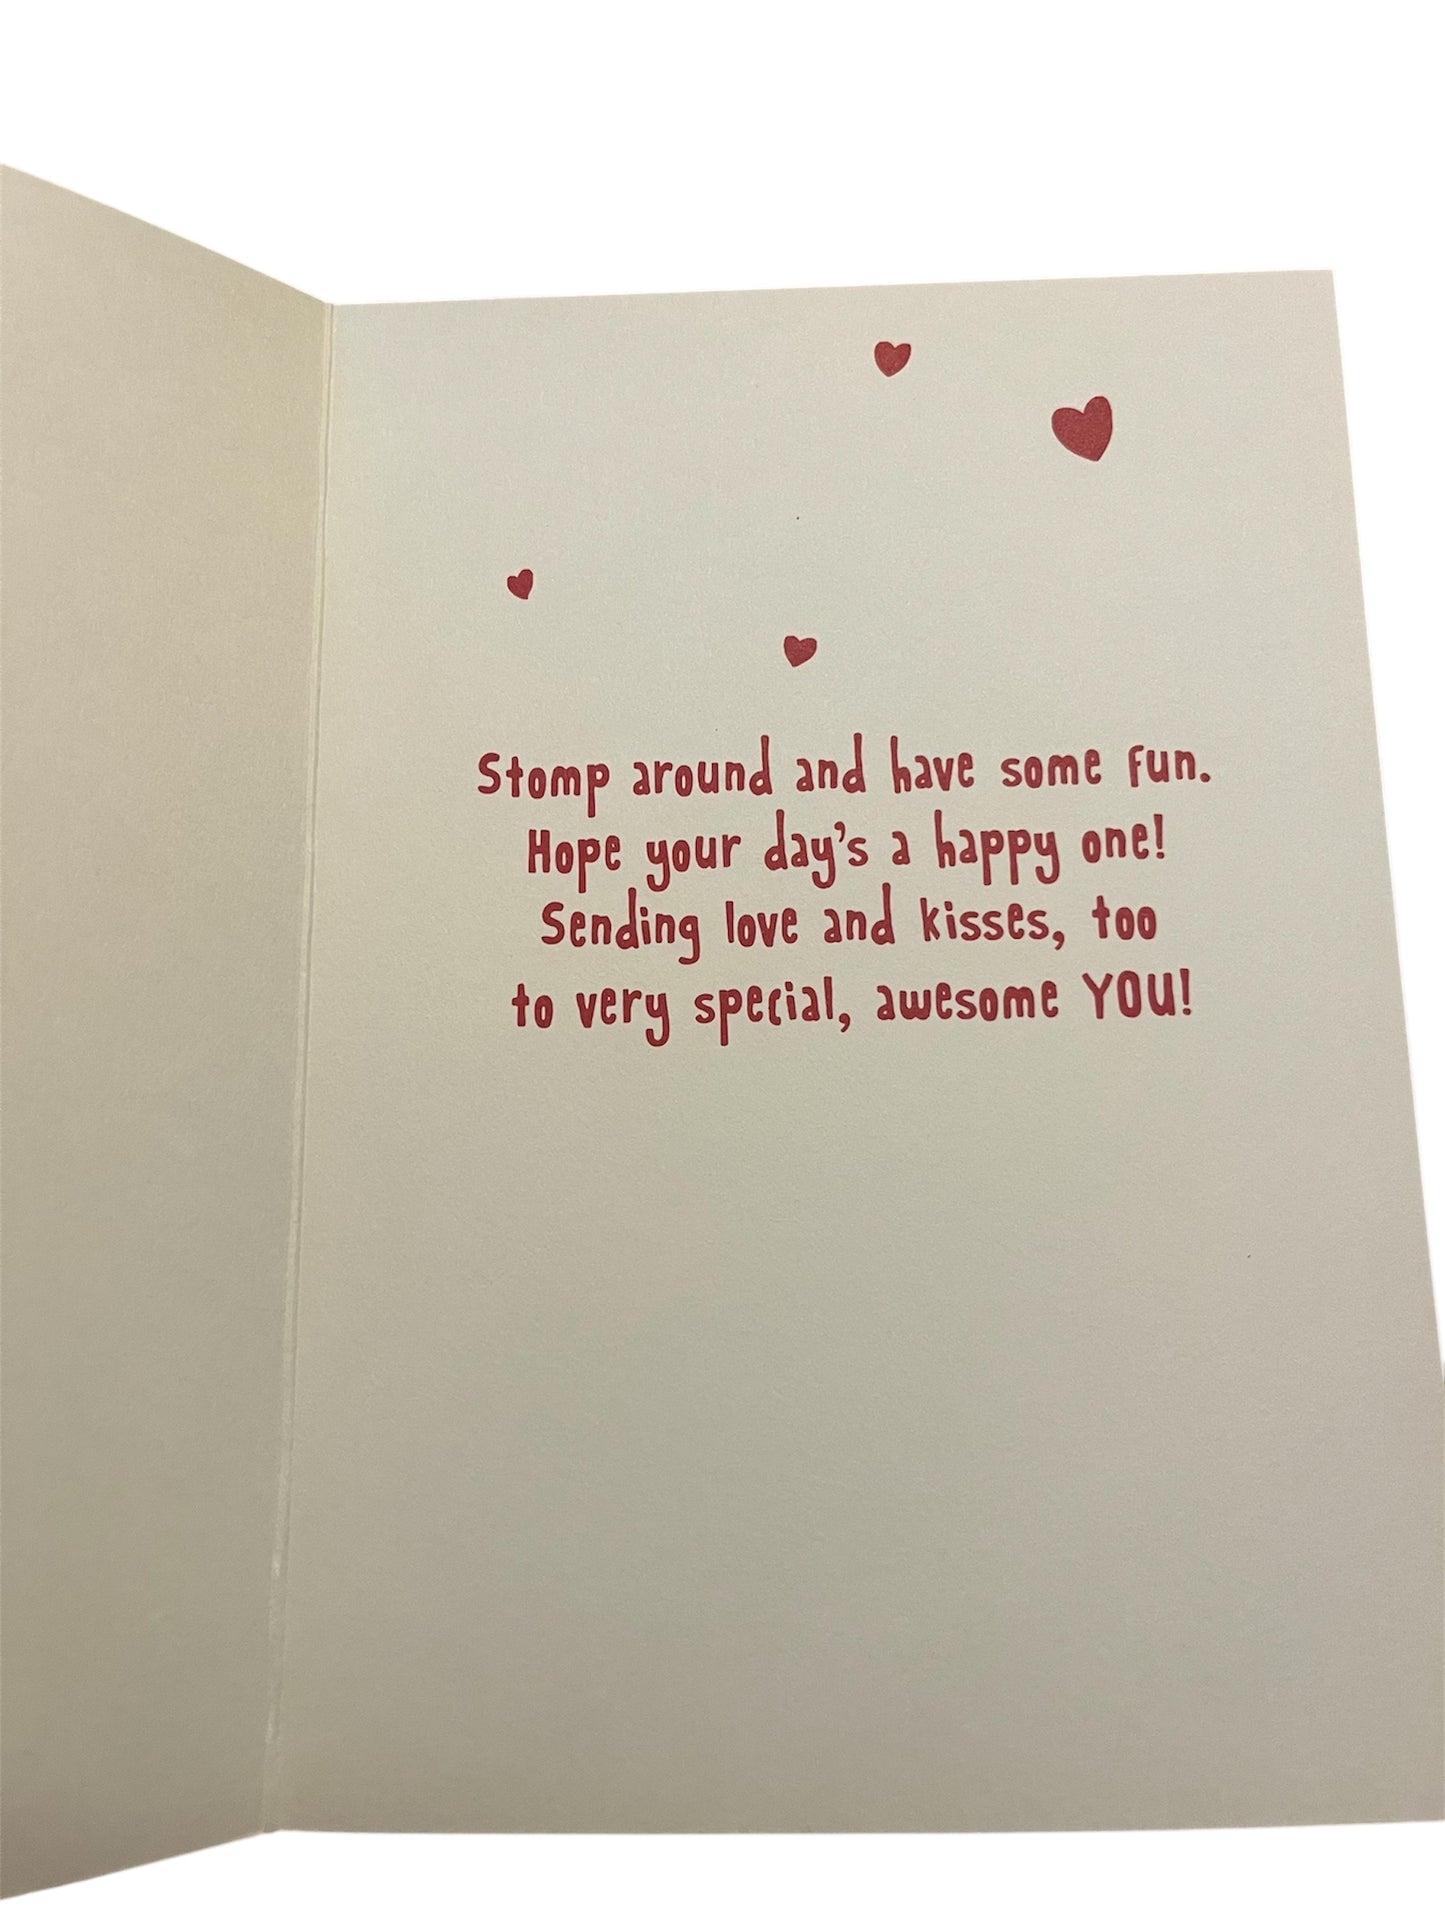 Stomp around and have some fun.
Hope your day's a happy one!
Sending love and kisses, too
to very special, awesome YOU!